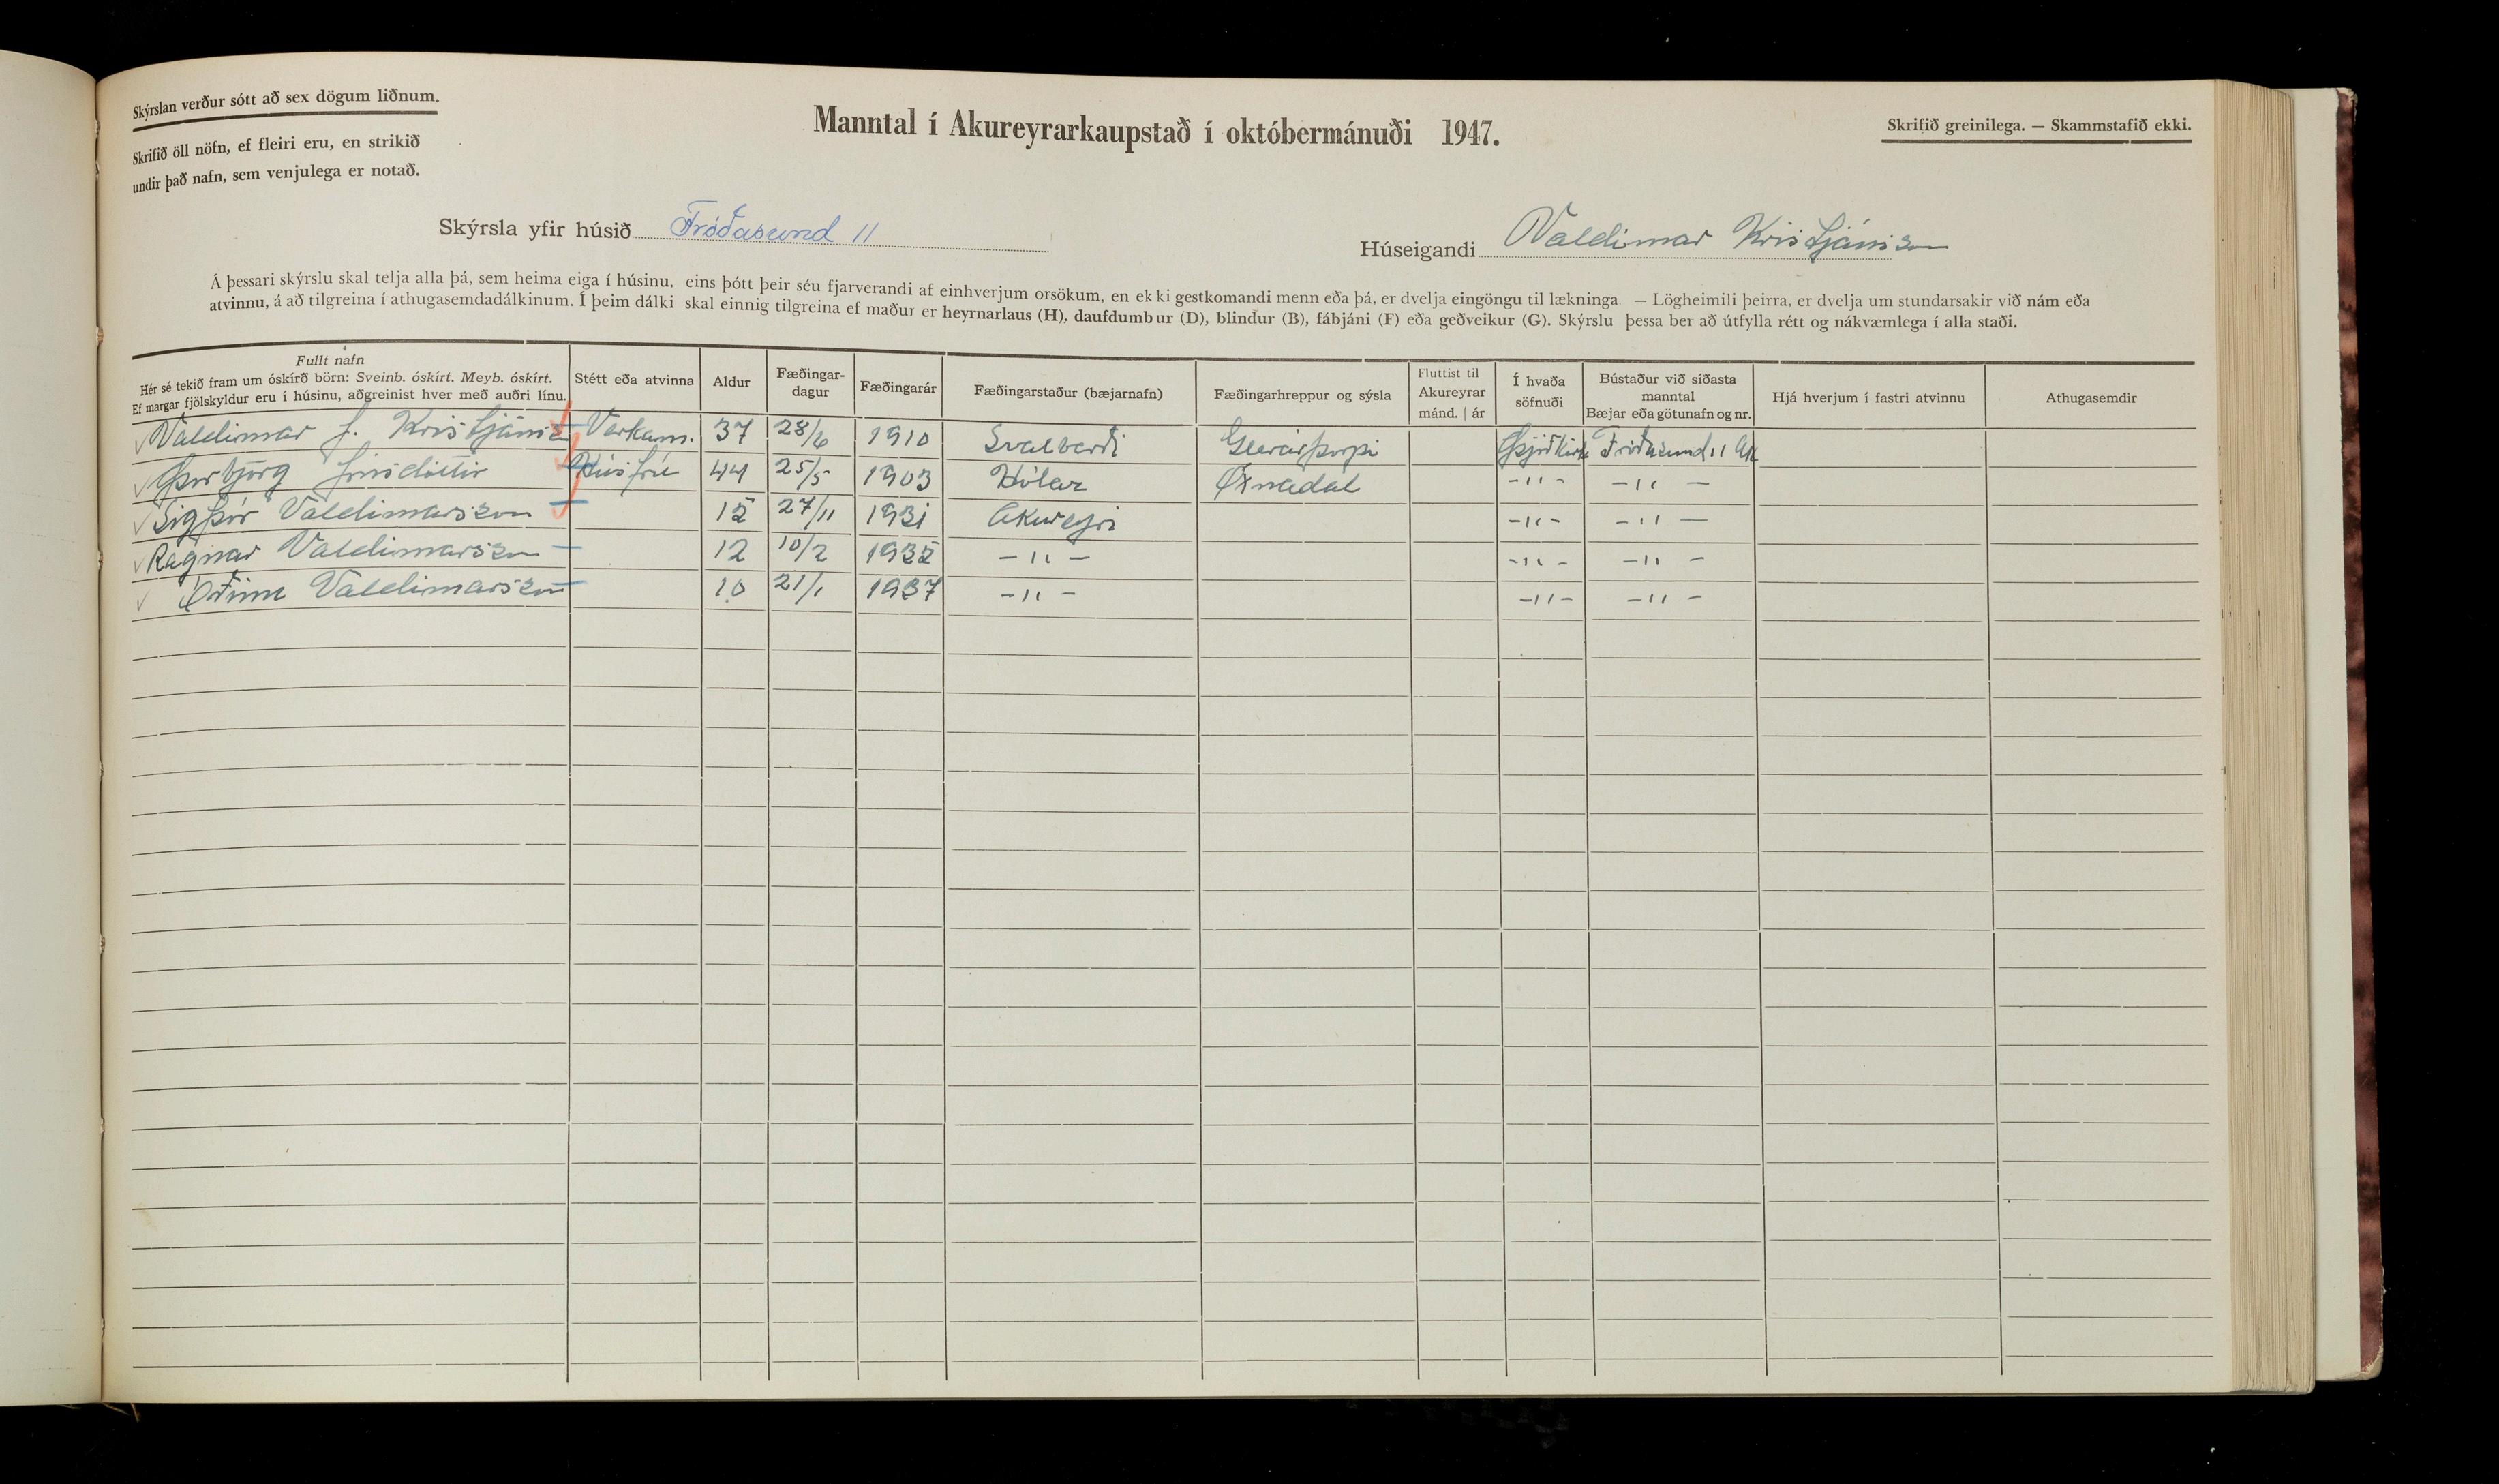 Skýrslan verður sótt að sex dögum liðnum.
Skrifið öll nöfn, ef fleiri eru, en strikið
undir það nafn, sem venjulega er notað.
Manntal í Akureyrarkaupstað í októbermánuði 1947.
Skrifið greinilega. — Skammstafið ekki.
Skýrsla yfir húsið Fróðasund 11
Húseigandi Valdimar Kristjánsson
Á þessari skýrslu skal telja alla þá, sem heima eiga í húsinu, eins þótt þeir séu fjarverandi af einhverjum orsökum, en ekki gestkomandi menn eða þá, er dvelja eingöngu til lækninga. — Lögheimili þeirra, er dvelja um stundarsakir við nám eða
atvinnu, á að tilgreina í athugasemdadálkinum. Í þeim dálki skal einnig tilgreina ef maður er heyrnarlaus (H), daufdumbur (D), blindur (B), fábjáni (F) eða geðveikur (G). Skýrslu þessa ber að útfylla rétt og nákvæmlega í alla staði.
Fullt nafn
Hér sé tekið fram um óskírð börn: Sveinb. óskírt. Meyb. óskírt.
Ef margar fjölskyldur eru í húsinu, aðgreinist hver með auðri línu.
Stétt eða atvinna
Aldur
Fæðingar-
dagur
Fæðingarár
Fæðingarstaður (bæjarnafn)
Fæðingarhreppur og sýsla
Fluttist til
Akureyrar
mánd. | ár
Í hvaða
söfnuði
Bústaður við síðasta
manntal
Bæjar eða götunafn og nr.
Hjá hverjum í fastri atvinnu
Athugasemdir
Valdimar J. Kristjánss Verkam. 37 28/6 1910 Svalbarði Glerárþorpi Þjóðkirk Fróðasund 11 Ak
Þorbjörg Jónsdóttir Húsfrú 44 25/5 1903 Hólar Öxnadal -11- -11-
Sigþór Valdimarsson 15 27/11 1931 Akureyri -11- -11-
Ragnar Valdimarsson 12 10/2 1935 -11- -11- -11-
Óðinn Valdimarsson 10 21/1 1937 -11- -11- -11-